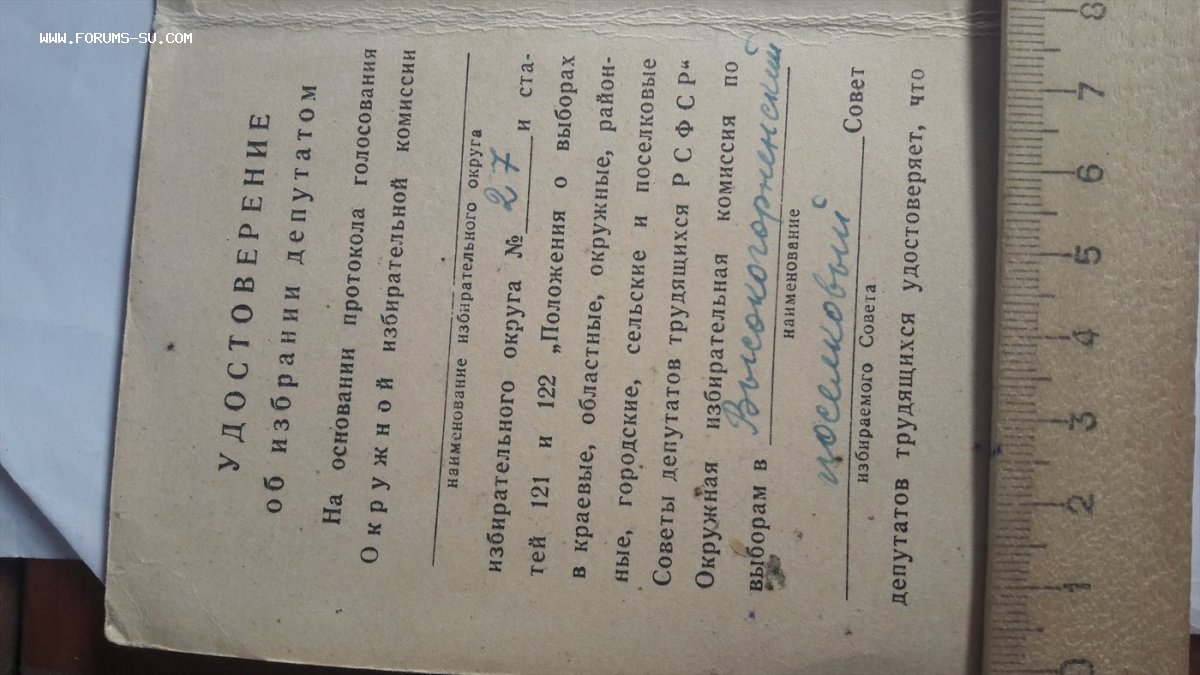 WWW.FORUMS-SU.COM
УДОСТОВЕРЕНИЕ
об избрании депутатом
На основании протокола голосования
Окружной избирательной комиссии
наименование избирательного округа
избирательного округа № 27 и ста-
тей 121 и 122 „Положения о выборах
в краевые, областные, окружные, район-
ные, городские, сельские и поселковые
Советы депутатов трудящихся РСФСР“
Окружная избирательная комиссия по
выборам в Высокогорненский
наименование
поселковый Совет
избираемого Совета
депутатов трудящихся удостоверяет, что
0 1 2 3 4 5 6 7 8